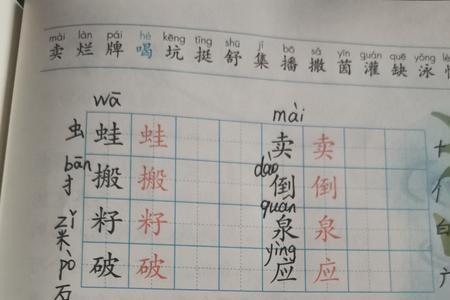 mài làn pái hē kēng tǐng shū jí bō sǎ yīn guàn quē yǒng
卖 烂 牌 喝 坑 挺 舒 集 播 撒 茵 灌 缺 泳
wā mài
虫 蛙 蛙 卖 卖
bān dào
扌 搬 搬 倒 倒
zǐ quán
米 籽 籽 泉 泉
pò yìng
石 破 破 应 应